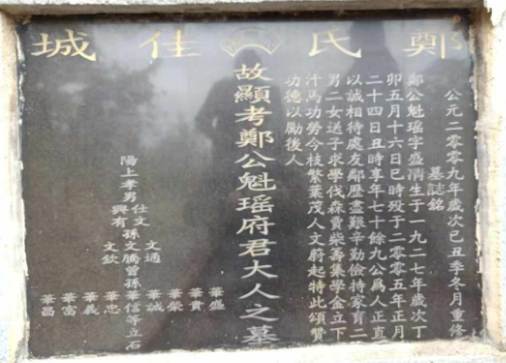 鄭氏佳城
公元二零零九年歲次己丑季冬月重修
墓誌銘
鄭公魁瑤字盛清生于一九二七年歲次丁
卯五月十六日巳時歿于二零零五年正月
二十四日丑時享年七十餘九公為人正直
以誠相待處友鄰歷盡艱辛勤儉持家育二
男二女送子求學伐森賣柴籌集學金立下
汗馬功勞今枝繁葉茂人文蔚起特此頌贊
功德以勵後人
故顯考鄭公魁瑤府君大人之墓
陽上孝男仕文 興有
孫文通 文騰 文欽
曾孫華盛 華貴 華榮 華誠 華信 華忠 華義 華富 華昌
等立石